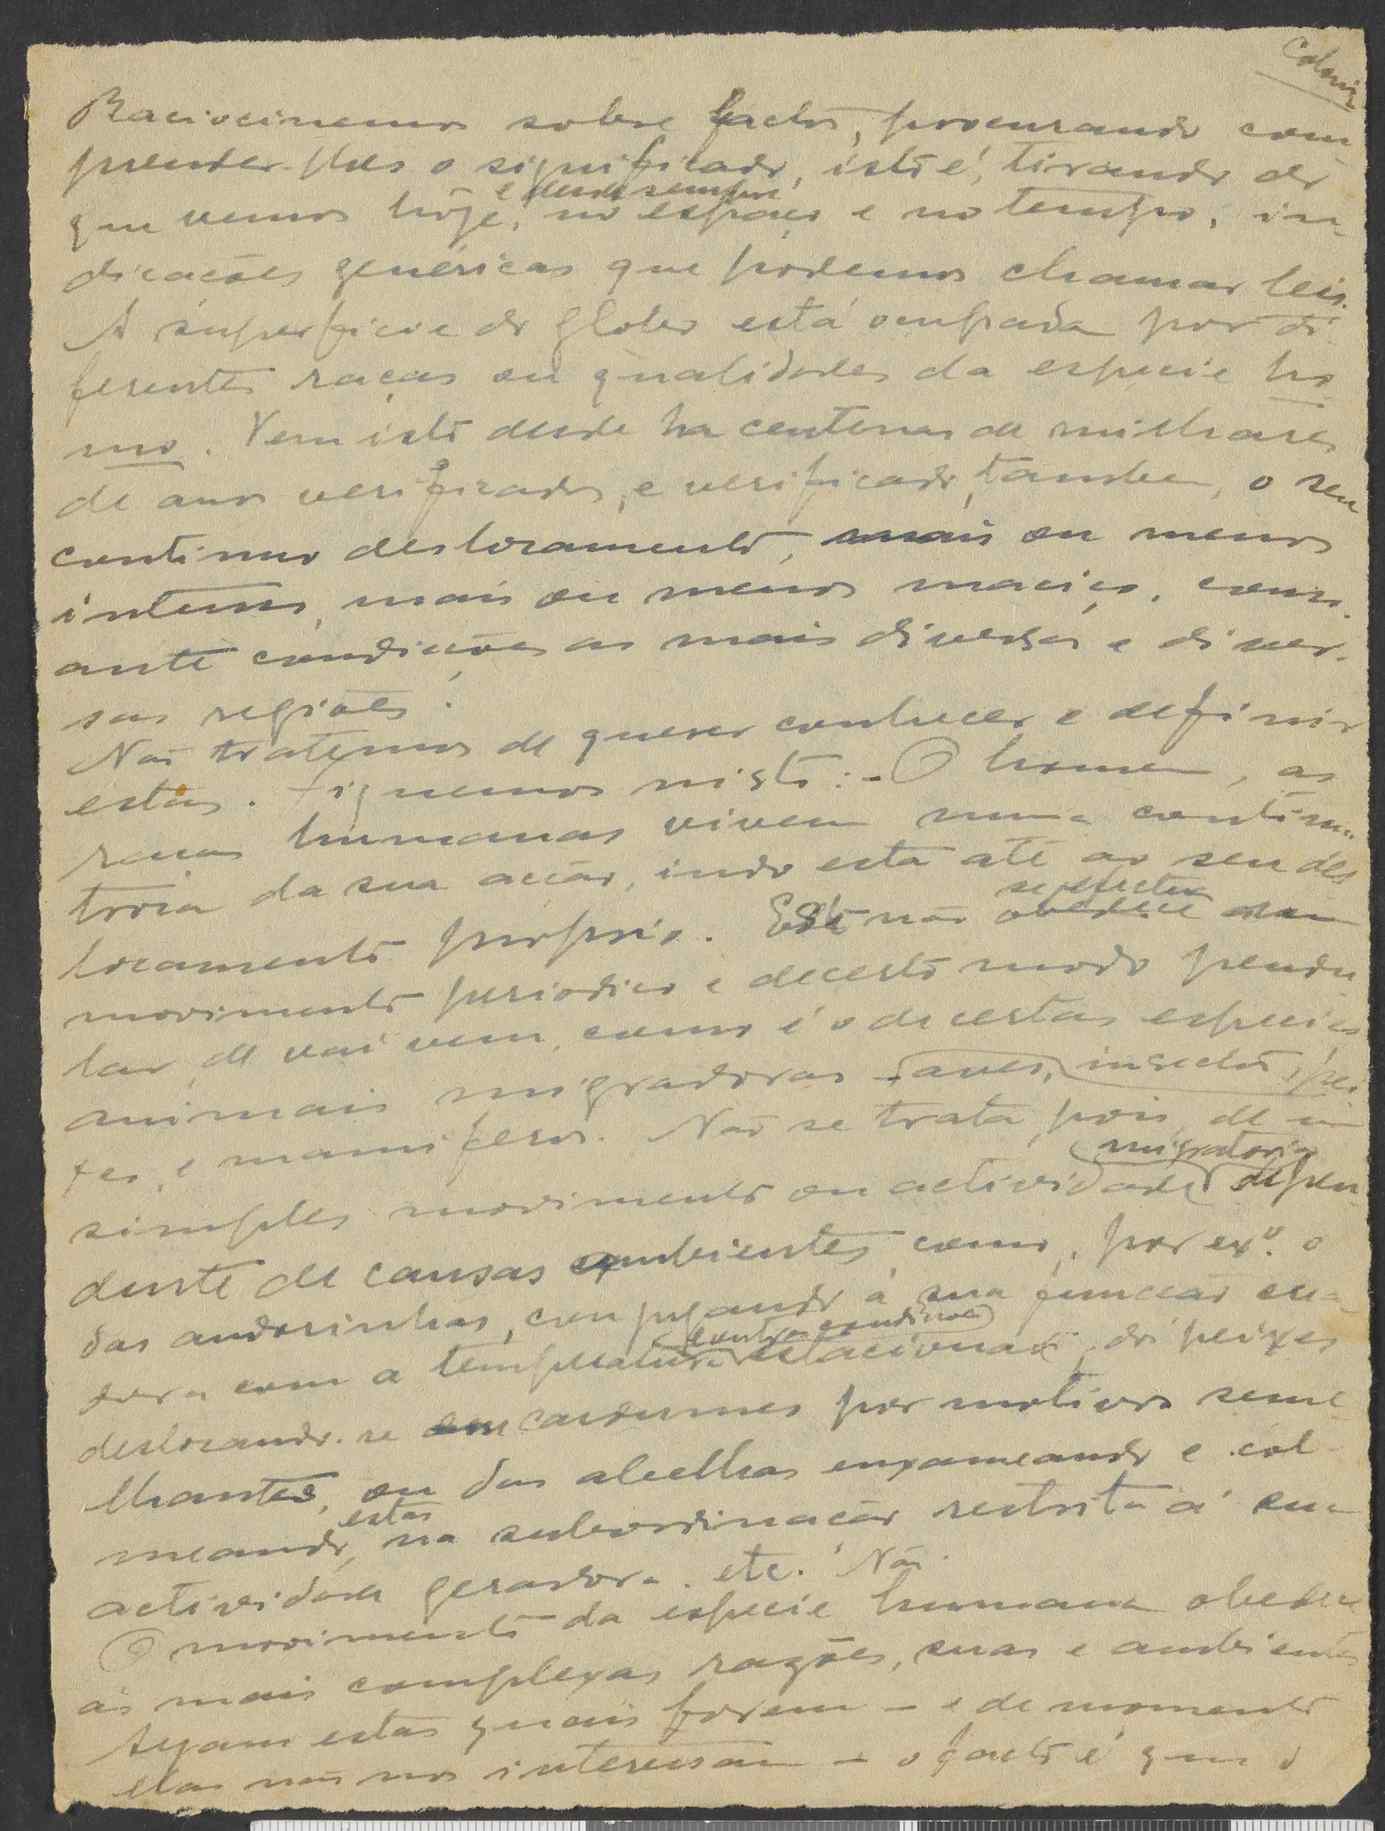 Coloniz
Raciocinemos sobre factos, procurando com
prender-lhes o significado, isto é, tirando do
que vemos hoje, e desde sempre, no espaço e no tempo, in-
dicações genéricas que podemos chamar leis.
A superficie do globo está ocupada por di
ferentes raças ou qualidades da especie ho
mo. Vem isto desde ha centenas de milhares
de anos verificado, e verificado, tambem, o seu
continuo deslocamento, mais ou menos
intenso, mais ou menos maciço, cons.
ante condições as mais diversas e diver-
sas regiões.
Não tratemos de querer conhecer e definir
estas. Fiquemos nisto: - O homem, as
raças humanas vivem numa
troria da sua acção, indo esta até ao seu des
locamento proprio. Este não se efectua
movimento periodico e de certo modo pendu
lar, de vai vem, como é o de certas especies
animais migradoras - aves, insectos, pei
xes, e mamiferos. Não se trata, pois, de um
simples movimento ou actividade migratoria depen-
dente de causas ambientes, como, por exº. o
das andorinhas, conjugando a sua funcção cria
dora com a temperatura e outras condições estacionais, dos peixes
deslocando-se em cardumes por motivos seme
lhantes, ou das abelhas enxameando e col
meando, estas na subordinação restrita á sua
actividade geradora. etc. Não.
O movimento da especie humana obedece
ás mais complexas razões, suas e ambientes
Sejam estas quais forem - e de momento
elas não nos interessam - o facto é que o